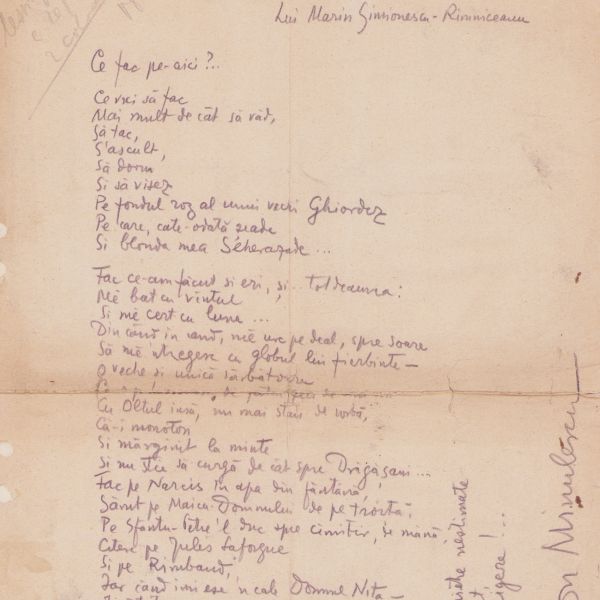 Lui Marin Simionescu-Rimniceanu
Ce fac pe-aici ?..
Ce vrei să fac
Mai mult de cât să văd,
Să tac,
S'ascult,
Să dorm
Si să visez
Pe fondul roz al unui vechi Ghiordez
Pe care, cate-odată șeade
Si blonda mea Séherazade ...
Fac ce-am făcut si eri, și .. totdeauna:
Mĕ bat cu vîntul
Si mĕ cert cu luna ...
Din când în când, mĕ urc pe deal, spre soare
Să mĕ 'ntregesc cu globul lui fierbinte —
O veche si unică sărbătoare
Cu Oltul însă, nu mai stau de vorbă,
Că-i monoton
Si mărginit la minte
Si nu știe să curgă de cât spre Drăgășani ...
Fac pe Narcis în apa din fântână,
Sărut pe Maica-Domnului de pe troiță,
Pe Sfântu-Petre 'l duc spre cimitir, de mână,
Citesc pe Jules Laforgue
Si pe Rimbaud,
Iar când îmi ese 'n cale Domnul Nita —
nestimate
Ion Minulescu